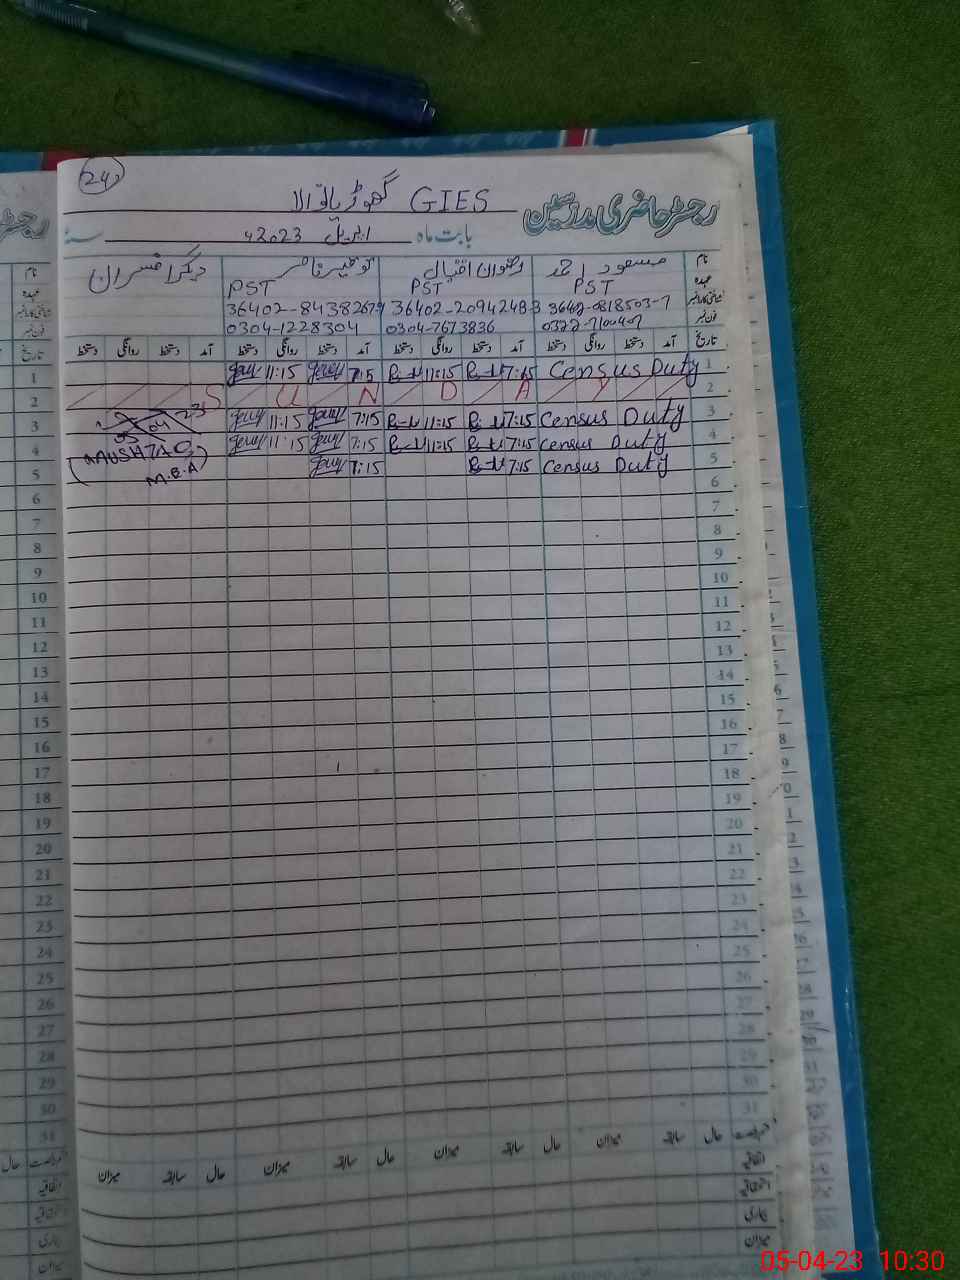 24
GIES گھوڑیانوالا
رجسٹر حاضری مدرسین
بابت ماہ اپریل 2023ء سنہ
نام مسعود احمد رضوان اقبال توقیر ناصر دیگر افسران
عہدہ PST PST PST
شناختی کارڈ نمبر 36402-0818503-7 36402-2094248-3 36402-8438267-9
فون نمبر 0322-7100407 0304-7673836 0304-1228304
تاریخ آمد دستخط روانگی دستخط آمد دستخط روانگی دستخط آمد دستخط روانگی دستخط آمد دستخط روانگی دستخط
1 Census Duty 7:15 11:15 7:15 11:15
2 S U N D A Y
3 Census Duty 7:15 11:15 7:15 11:15
4 Census Duty 7:15 11:15 7:15 11:15
5 Census Duty 7:15 7:15
05 04 23
(MUSHTAQ)
M.E.A
6
7
8
9
10
11
12
13
14
15
16
17
18
19
20
21
22
23
24
25
26
27
28
29
30
31
حال سابقہ میزان حال سابقہ میزان حال سابقہ میزان حال سابقہ میزان
اتفاقیہ
استحقاقیہ
بیماری
میزان
05-04-23 10:30